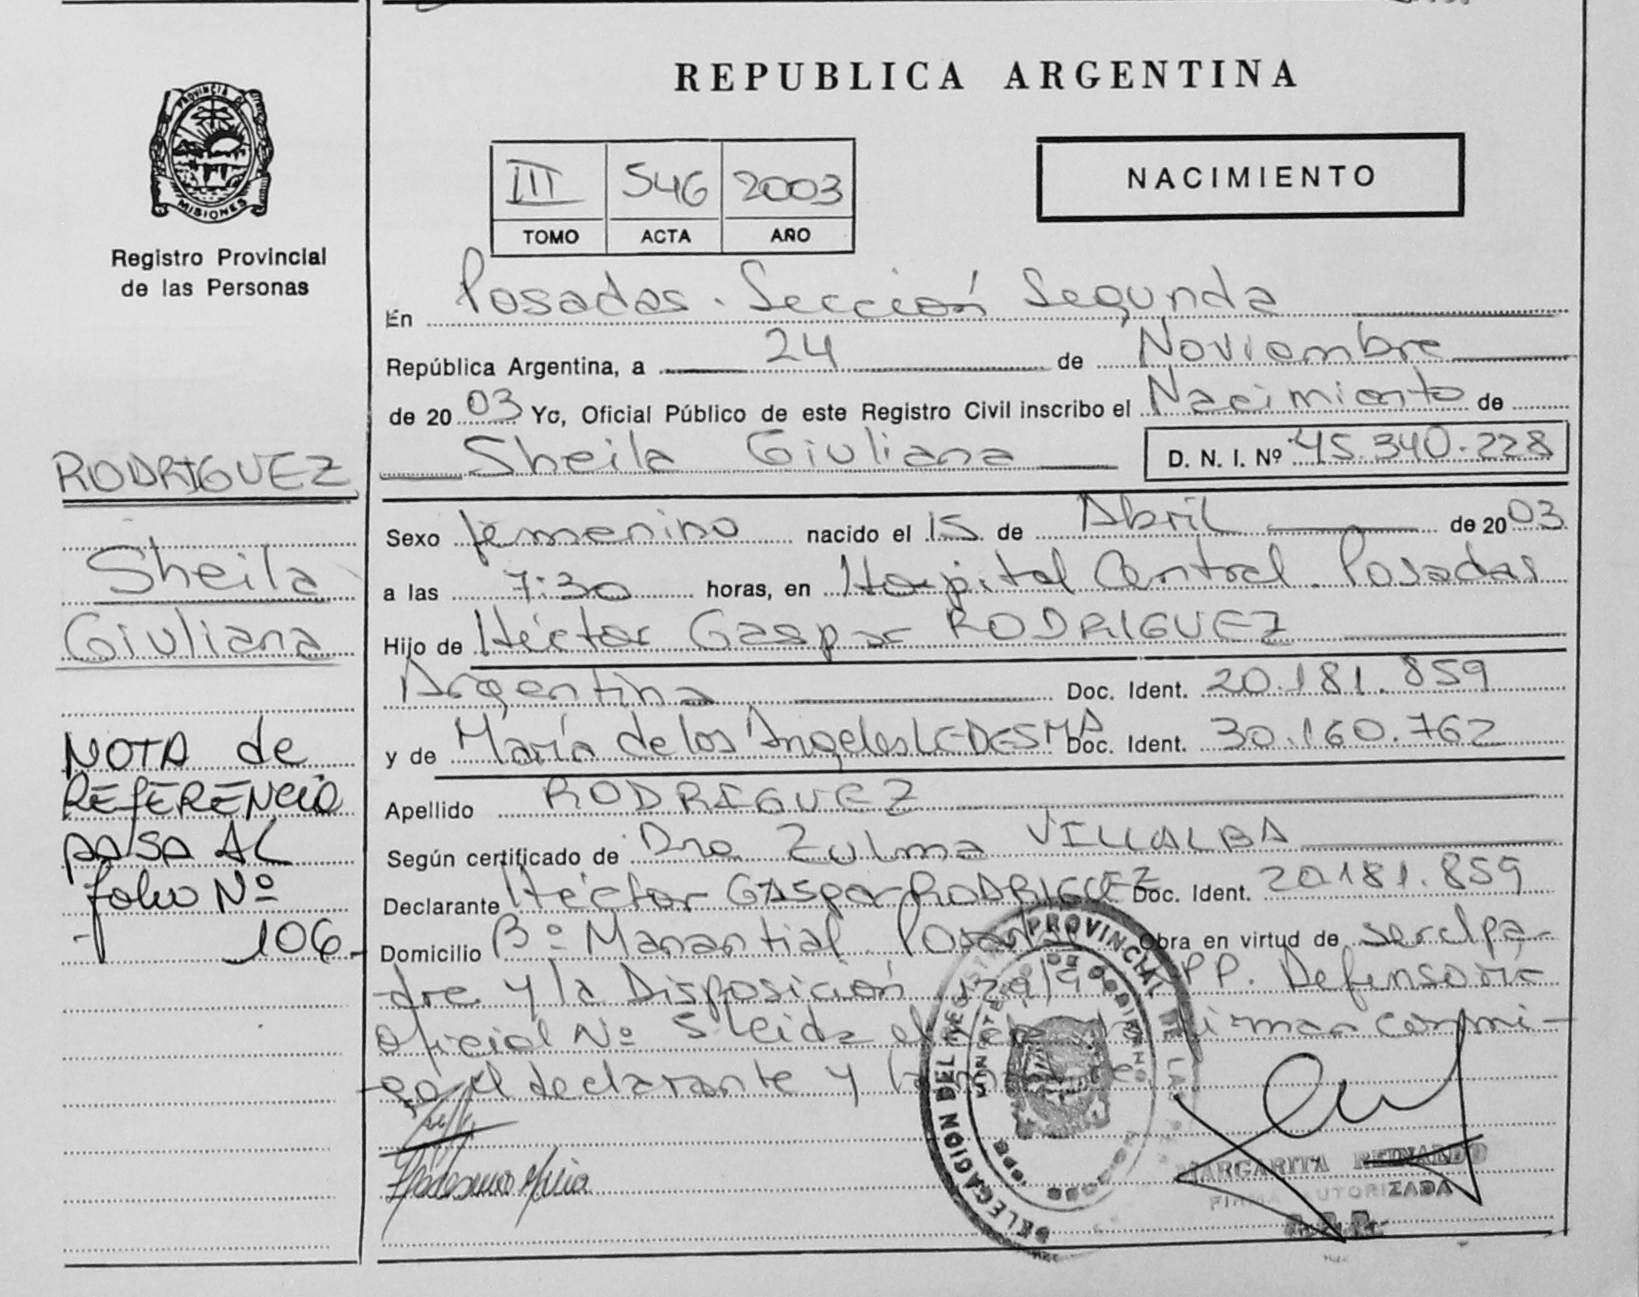 REPUBLICA ARGENTINA
PROVINCIA DE
MISIONES
Registro Provincial
de las Personas
III 546 2003
TOMO ACTA AÑO
NACIMIENTO
En Posadas. Sección Segunda
República Argentina, a 24 de Noviembre
de 2003 Yo, Oficial Público de este Registro Civil inscribo el Nacimiento de
Sheila Giuliana D. N. I. Nº 45.340.228
RODRIGUEZ
Sheila
Giuliana
Sexo femenino nacido el 15 de Abril de 2003
a las 7:30 horas, en Hospital Central. Posadas
Hijo de Héctor Gaspar RODRIGUEZ
Argentina Doc. Ident. 20.181.859
y de María de los Angeles LEDESMA Doc. Ident. 30.160.762
Apellido RODRIGUEZ
Según certificado de Dra. Zulma VILLALBA
Declarante Héctor Gaspar RODRIGUEZ Doc. Ident. 20.181.859
Domicilio Bº Manantial. Posadas Obra en virtud de ser el pa-
dre y la Disposición PP. Defensoría
Oficial Nº 5 leída el firman conmi-
go el declarante y la
NOTA de
REFERENCIA
PASA AL
folio Nº
106
DELEGACION DEL REGISTRO PROVINCIAL DE LAS
MINISTERIO DE GOBIERNO
MARGARITA REINARDO
FIRMA AUTORIZADA